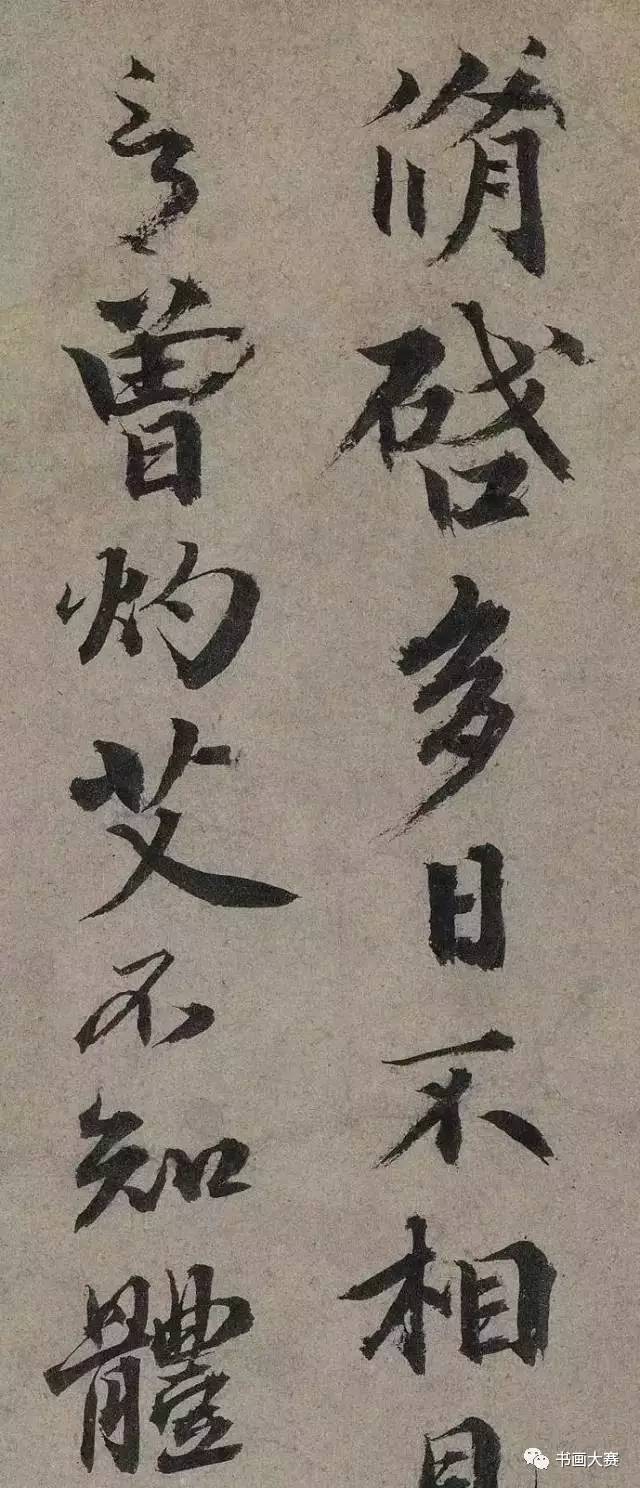 脩啓多日不相見
言曾灼艾不知體
书画大赛